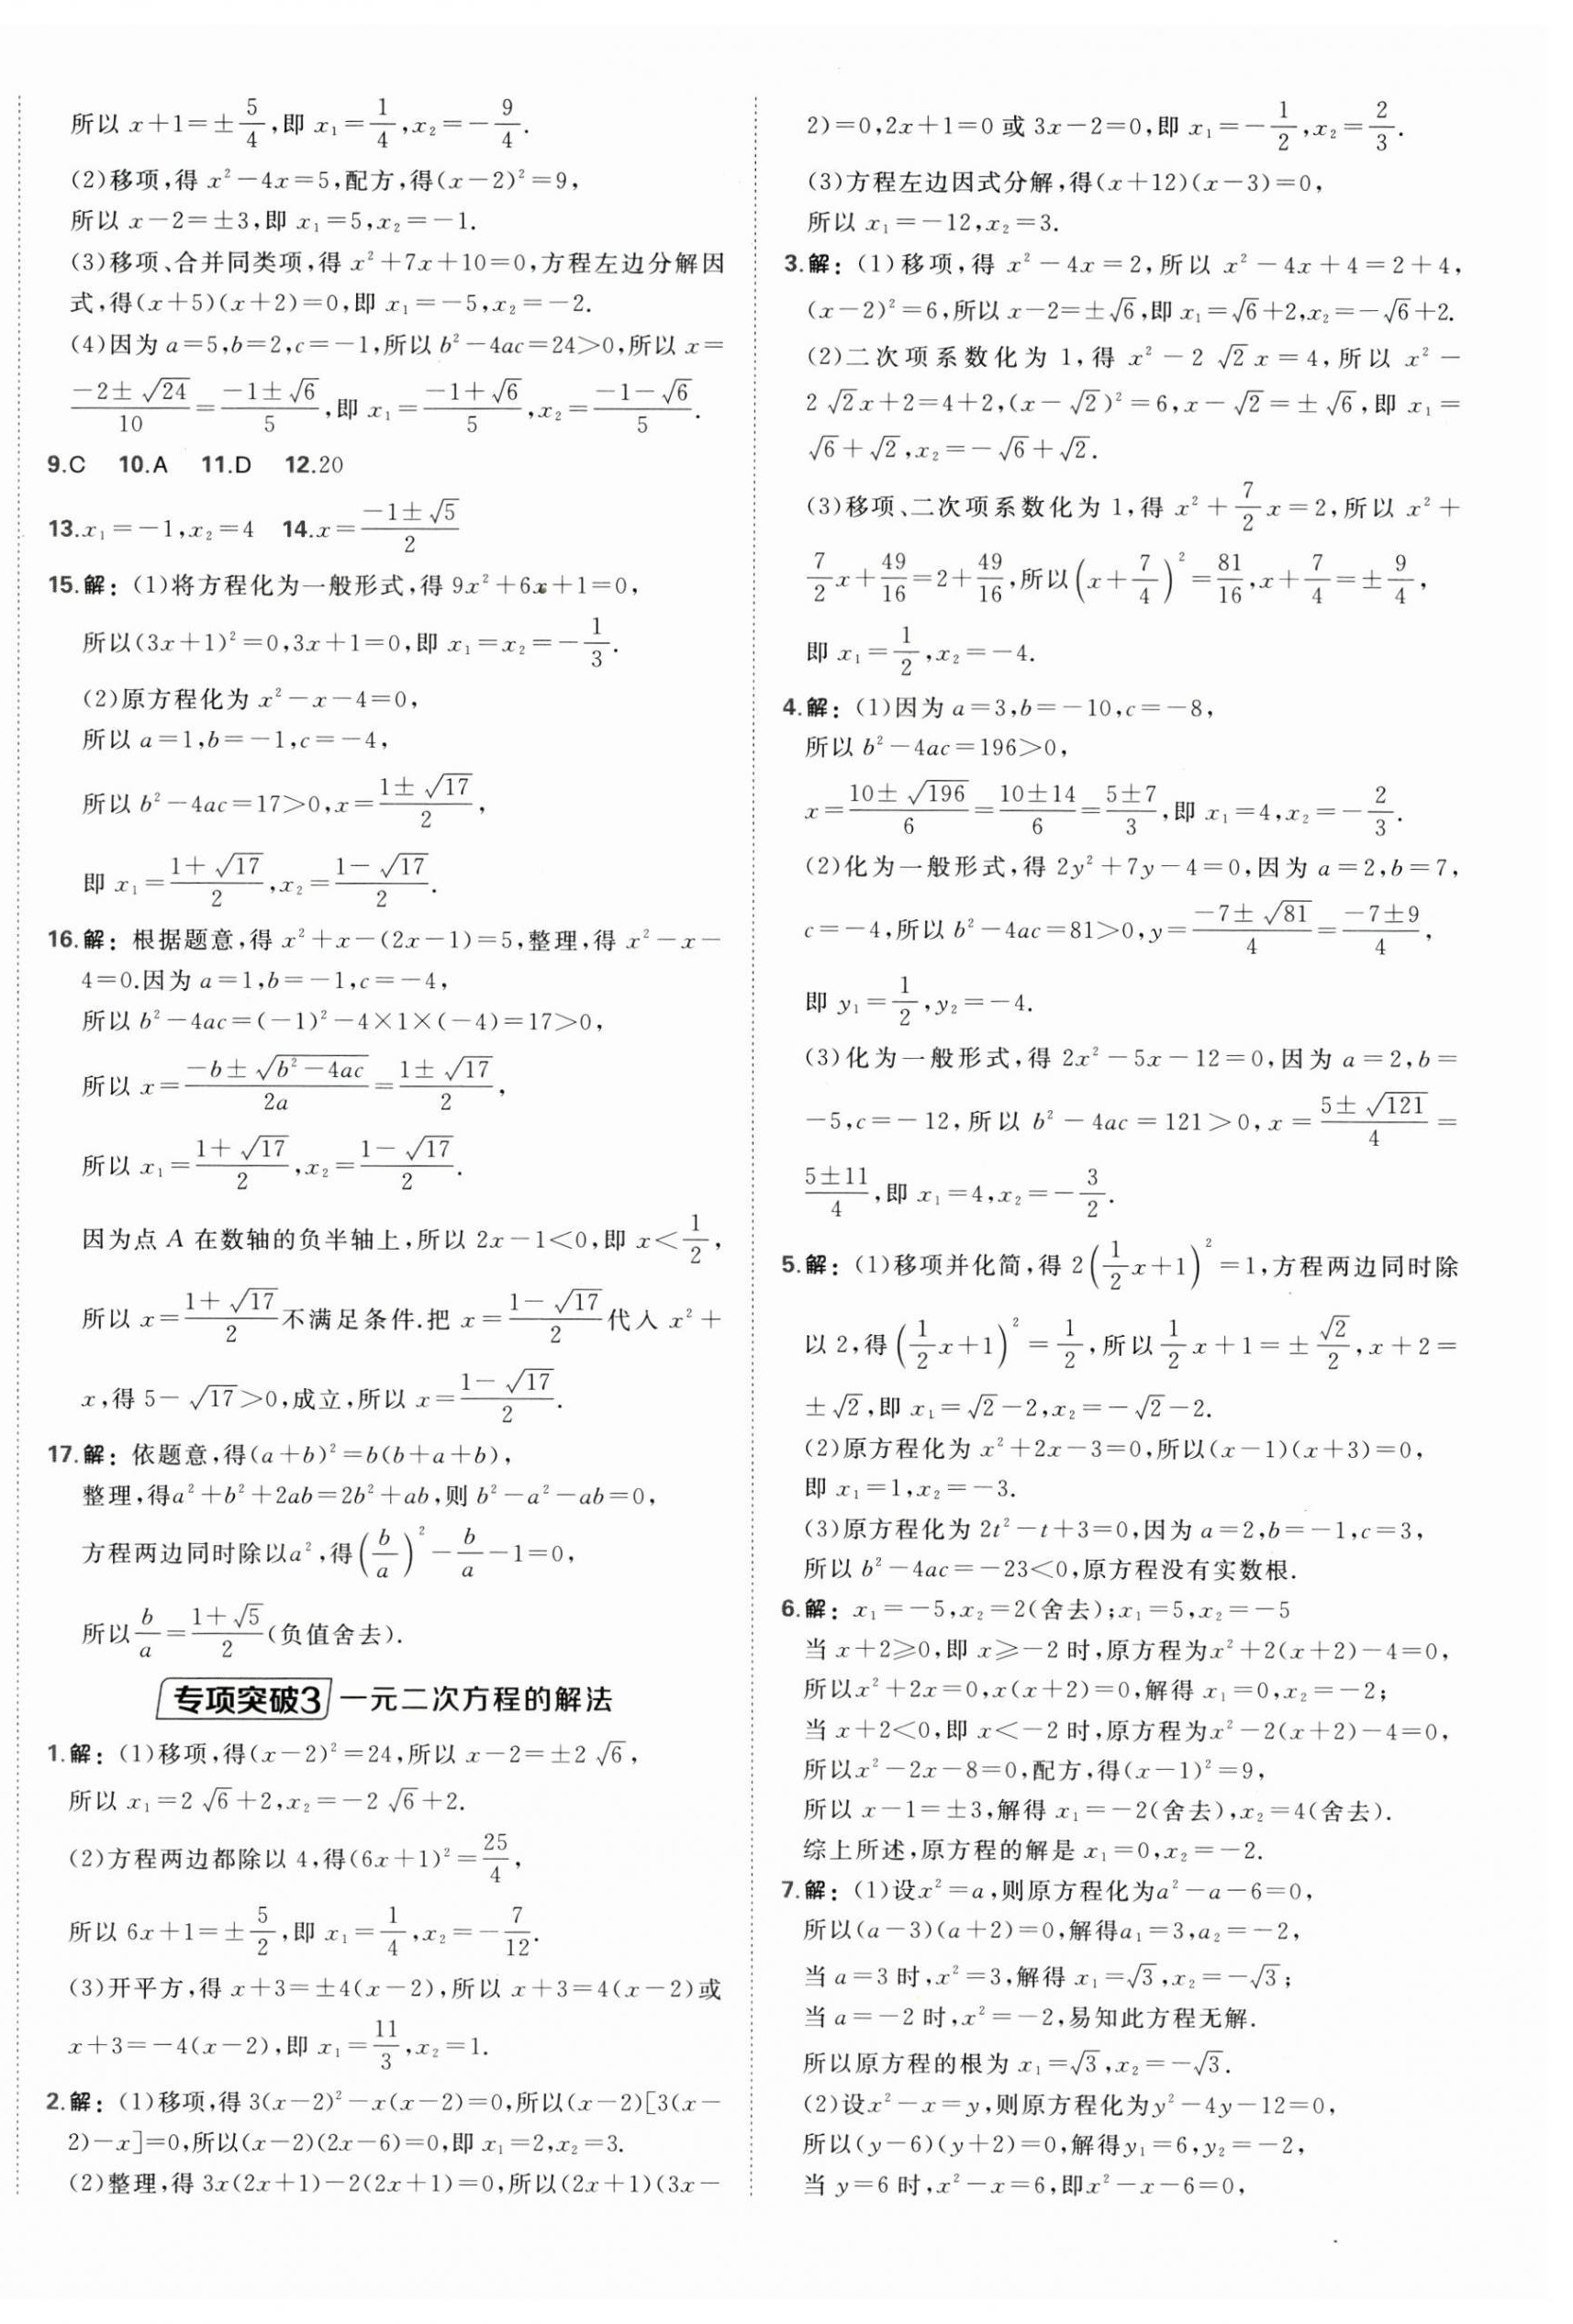 所以 x+1=±5/4,即 x₁=1/4,x₂=-9/4.
(2)移项,得 x²-4x=5,配方,得(x-2)²=9,
所以 x-2=±3,即 x₁=5,x₂=-1.
(3)移项、合并同类项,得 x²+7x+10=0,方程左边分解因
式,得(x+5)(x+2)=0,即 x₁=-5,x₂=-2.
(4)因为 a=5,b=2,c=-1,所以 b²-4ac=24>0,所以 x=
(-2±√24)/10=(-1±√6)/5,即 x₁=(-1+√6)/5,x₂=(-1-√6)/5.
9.C 10.A 11.D 12.20
13.x₁=-1,x₂=4 14.x=(-1±√5)/2
15.解:(1)将方程化为一般形式,得 9x²+6x+1=0,
所以(3x+1)²=0,3x+1=0,即 x₁=x₂=-1/3.
(2)原方程化为 x²-x-4=0,
所以 a=1,b=-1,c=-4,
所以 b²-4ac=17>0,x=(1±√17)/2,
即 x₁=(1+√17)/2,x₂=(1-√17)/2.
16.解:根据题意,得 x²+x-(2x-1)=5,整理,得 x²-x-
4=0.因为 a=1,b=-1,c=-4,
所以 b²-4ac=(-1)²-4×1×(-4)=17>0,
所以 x=(-b±√(b²-4ac))/2a=(1±√17)/2,
所以 x₁=(1+√17)/2,x₂=(1-√17)/2.
因为点 A 在数轴的负半轴上,所以 2x-1<0,即 x<1/2,
所以 x=(1+√17)/2不满足条件.把 x=(1-√17)/2代入 x²+
x,得 5-√17>0,成立,所以 x=(1-√17)/2.
17.解:依题意,得(a+b)²=b(b+a+b),
整理,得a²+b²+2ab=2b²+ab,则 b²-a²-ab=0,
方程两边同时除以a²,得(b/a)²-b/a-1=0,
所以b/a=(1+√5)/2(负值舍去).
专项突破3 一元二次方程的解法
1.解:(1)移项,得(x-2)²=24,所以 x-2=±2√6,
所以 x₁=2√6+2,x₂=-2√6+2.
(2)方程两边都除以 4,得(6x+1)²=25/4,
所以 6x+1=±5/2,即 x₁=1/4,x₂=-7/12.
(3)开平方,得 x+3=±4(x-2),所以 x+3=4(x-2)或
x+3=-4(x-2),即 x₁=11/3,x₂=1.
2.解:(1)移项,得 3(x-2)²-x(x-2)=0,所以(x-2)[3(x-
2)-x]=0,所以(x-2)(2x-6)=0,即 x₁=2,x₂=3.
(2)整理,得 3x(2x+1)-2(2x+1)=0,所以(2x+1)(3x-
2)=0,2x+1=0 或 3x-2=0,即 x₁=-1/2,x₂=2/3.
(3)方程左边因式分解,得(x+12)(x-3)=0,
所以 x₁=-12,x₂=3.
3.解:(1)移项,得 x²-4x=2,所以 x²-4x+4=2+4,
(x-2)²=6,所以 x-2=±√6,即 x₁=√6+2,x₂=-√6+2.
(2)二次项系数化为 1,得 x²-2√2x=4,所以 x²-
2√2x+2=4+2,(x-√2)²=6,x-√2=±√6,即 x₁=
√6+√2,x₂=-√6+√2.
(3)移项、二次项系数化为 1,得 x²+7/2x=2,所以 x²+
7/2x+49/16=2+49/16,所以(x+7/4)²=81/16,x+7/4=±9/4,
即 x₁=1/2,x₂=-4.
4.解:(1)因为 a=3,b=-10,c=-8,
所以 b²-4ac=196>0,
x=(10±√196)/6=(10±14)/6=(5±7)/3,即 x₁=4,x₂=-2/3.
(2)化为一般形式,得 2y²+7y-4=0,因为 a=2,b=7,
c=-4,所以 b²-4ac=81>0,y=(-7±√81)/4=(-7±9)/4,
即 y₁=1/2,y₂=-4.
(3)化为一般形式,得 2x²-5x-12=0,因为 a=2,b=
-5,c=-12,所以 b²-4ac=121>0,x=(5±√121)/4=
(5±11)/4,即 x₁=4,x₂=-3/2.
5.解:(1)移项并化简,得 2(1/2x+1)²=1,方程两边同时除
以 2,得(1/2x+1)²=1/2,所以1/2x+1=±√2/2,x+2=
±√2,即 x₁=√2-2,x₂=-√2-2.
(2)原方程化为 x²+2x-3=0,所以(x-1)(x+3)=0,
即 x₁=1,x₂=-3.
(3)原方程化为 2t²-t+3=0,因为 a=2,b=-1,c=3,
所以 b²-4ac=-23<0,原方程没有实数根.
6.解:x₁=-5,x₂=2(舍去);x₁=5,x₂=-5
当 x+2≥0,即 x≥-2 时,原方程为x²+2(x+2)-4=0,
所以x²+2x=0,x(x+2)=0,解得 x₁=0,x₂=-2;
当 x+2<0,即 x<-2 时,原方程为x²-2(x+2)-4=0,
所以x²-2x-8=0,配方,得(x-1)²=9,
所以 x-1=±3,解得 x₁=-2(舍去),x₂=4(舍去).
综上所述,原方程的解是 x₁=0,x₂=-2.
7.解:(1)设x²=a,则原方程化为a²-a-6=0,
所以(a-3)(a+2)=0,解得a₁=3,a₂=-2,
当 a=3 时,x²=3,解得 x₁=√3,x₂=-√3;
当 a=-2 时,x²=-2,易知此方程无解.
所以原方程的根为 x₁=√3,x₂=-√3.
(2)设x²-x=y,则原方程化为y²-4y-12=0,
所以(y-6)(y+2)=0,解得y₁=6,y₂=-2,
当 y=6 时,x²-x=6,即x²-x-6=0,